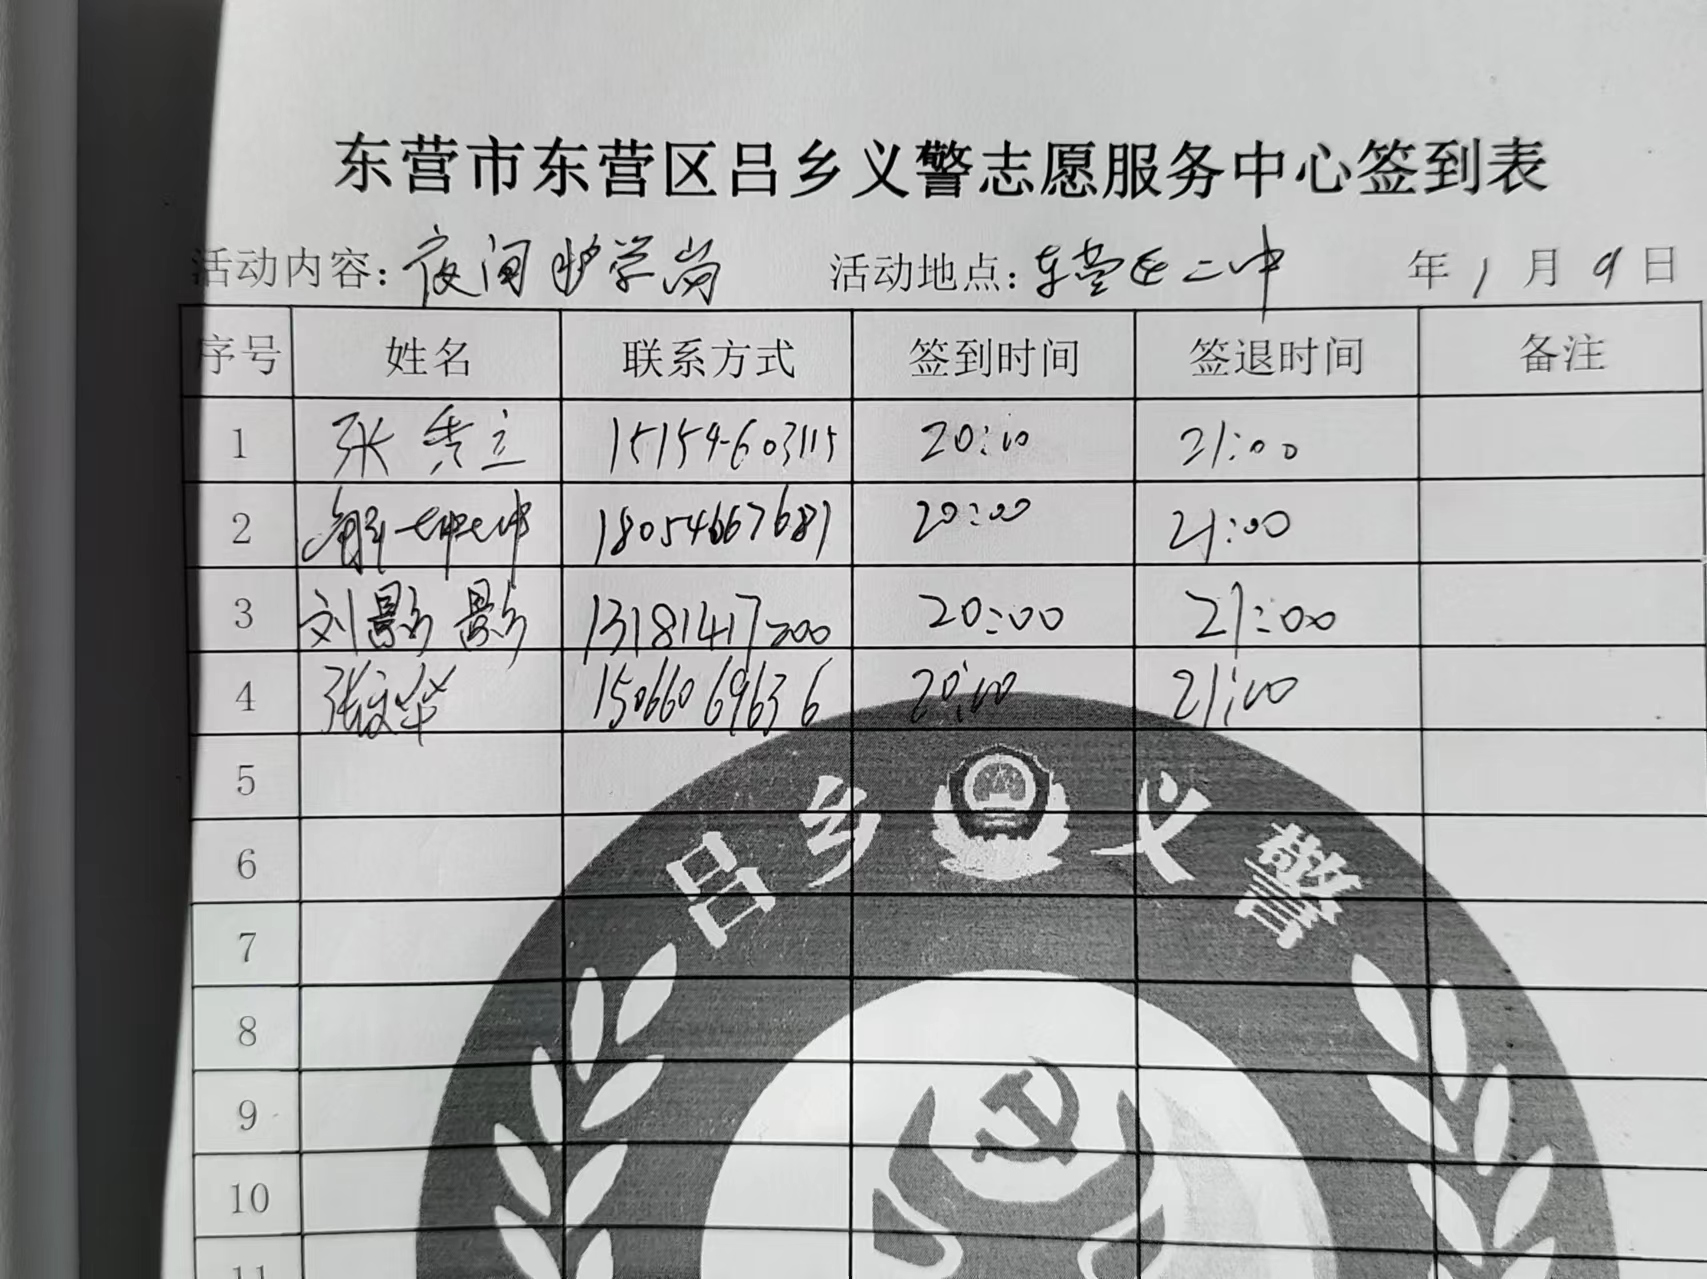 东营市东营区吕乡义警志愿服务中心签到表
活动内容：夜间护学岗 活动地点：东营区二中 年1月9日
序号 姓名 联系方式 签到时间 签退时间 备注
1 张秀立 15154603115 20:00 21:00
2 解坤坤 18054667681 20:00 21:00
3 刘影影 13181417200 20:00 21:00
4 张文华 15066069636 20:00 21:00
5
吕乡义警
6
7
8
9
10
11